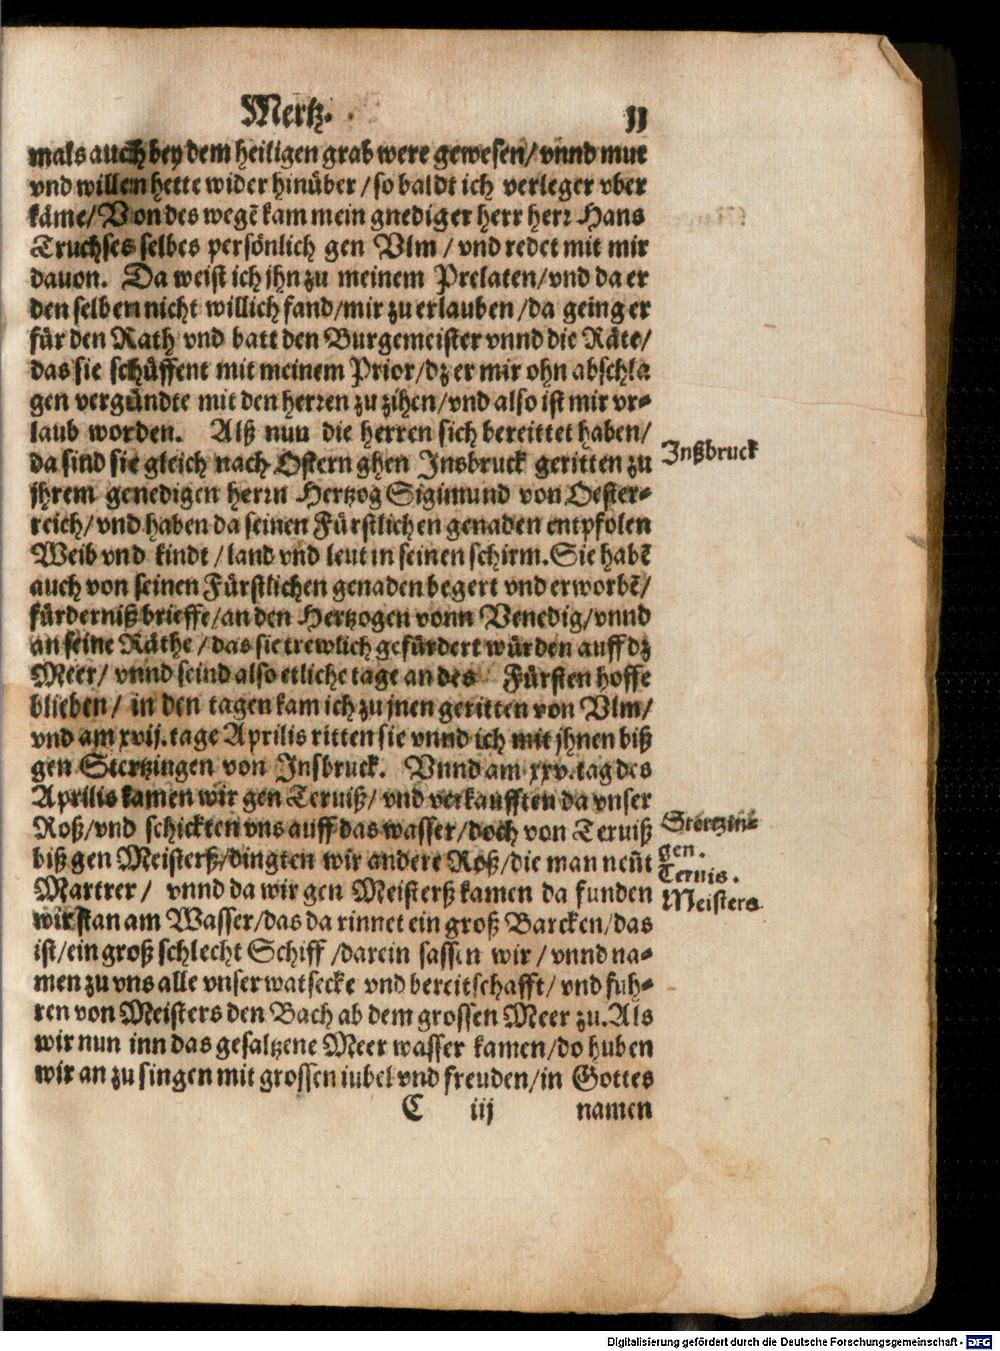 Mertz. 11
mals auch bey dem heiligen grab were gewesen/ vnnd mut
vnd willen hette wider hinüber / so baldt ich verleger vber
käme/ Von des wegẽ kam mein gnediger herr herr Hans
Truchses selbes persönlich gen Vlm / vnd redet mit mir
dauon. Da weist ich jhn zu meinem Prelaten/ vnd da er
den selben nicht willich fand/ mir zu erlauben / da geing er
für den Rath vnd batt den Burgemeister vnnd die Räte/
das sie schüffent mit meinem Prior/ dz er mir ohn abschla
gen vergündte mit den herren zu zihen/ vnd also ist mir vr-
laub worden. Alß nun die herren sich bereittet haben/
da sind sie gleich nach Ostern ghen Insbruck geritten zu
jhrem genedigen herrn Hertzog Sigimund von Oester-
reich/ vnd haben da seinen Fürstlichen genaden entpfolen
Weib vnd kindt / land vnd leut in seinen schirm. Sie habẽ
auch von seinen Fürstlichen genaden begert vnd erworbẽ/
fürderniß brieffe/ an den Hertzogen vonn Venedig/ vnnd
an seine Räthe / das sie trewlich gefürdert würden auff dz
Meer/ vnnd seind also etliche tage an des Fürsten hoffe
blieben/ in den tagen kam ich zu jnen geritten von Vlm/
vnd am xvij. tage Aprilis ritten sie vnnd ich mit jhnen biß
gen Stertzingen von Insbruck. Vnnd am xxv. tag des
Aprilis kamen wir gen Teruiß/ vnd verkaufften da vnser
Roß/ vnd schickten vns auff das wasser/ doch von Teruiß
biß gen Meisterß/ dingten wir andere Roß/ die man neñt
Martrer / vnnd da wir gen Meisterß kamen da funden
wir stan am Wasser/ das da rinnet ein groß Barcken/ das
ist/ ein groß schlecht Schiff / darein sassen wir / vnnd na-
men zu vns alle vnser watsecke vnd bereitschafft/ vnd fuh-
ren von Meisters den Bach ab dem grossen Meer zu. Als
wir nun inn das gesaltzene Meer wasser kamen/ do huben
wir an zu singen mit grossen iubel vnd freuden/ in Gottes
C iij namen
Inßbruck
Stertzin-
gen.
Teruis.
Meisters
Digitalisierung gefördert durch die Deutsche Forschungsgemeinschaft - DFG